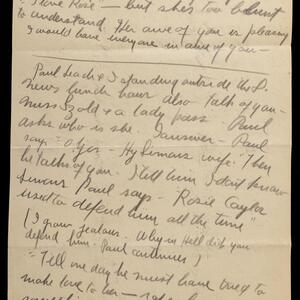 I love Rose — but she's too blunt
to understand. Her awe of you is pleasing
I would have everyone in awe of you —
Paul Leach & I standing outside the D.
News lunch hour also talk of you —
Miss Gold & a lady pass — Paul
asks who is she. I answer — Paul
says — o yes — Hy Simons wife. Then
he talks of you. I tell him I don't know
Simons Paul says — Rosie Caylor
used to defend him all the time"
(I grow jealous. Why in Hell did you
defend him. Paul continues)
"Tell one day he must have tried to
make love to her —